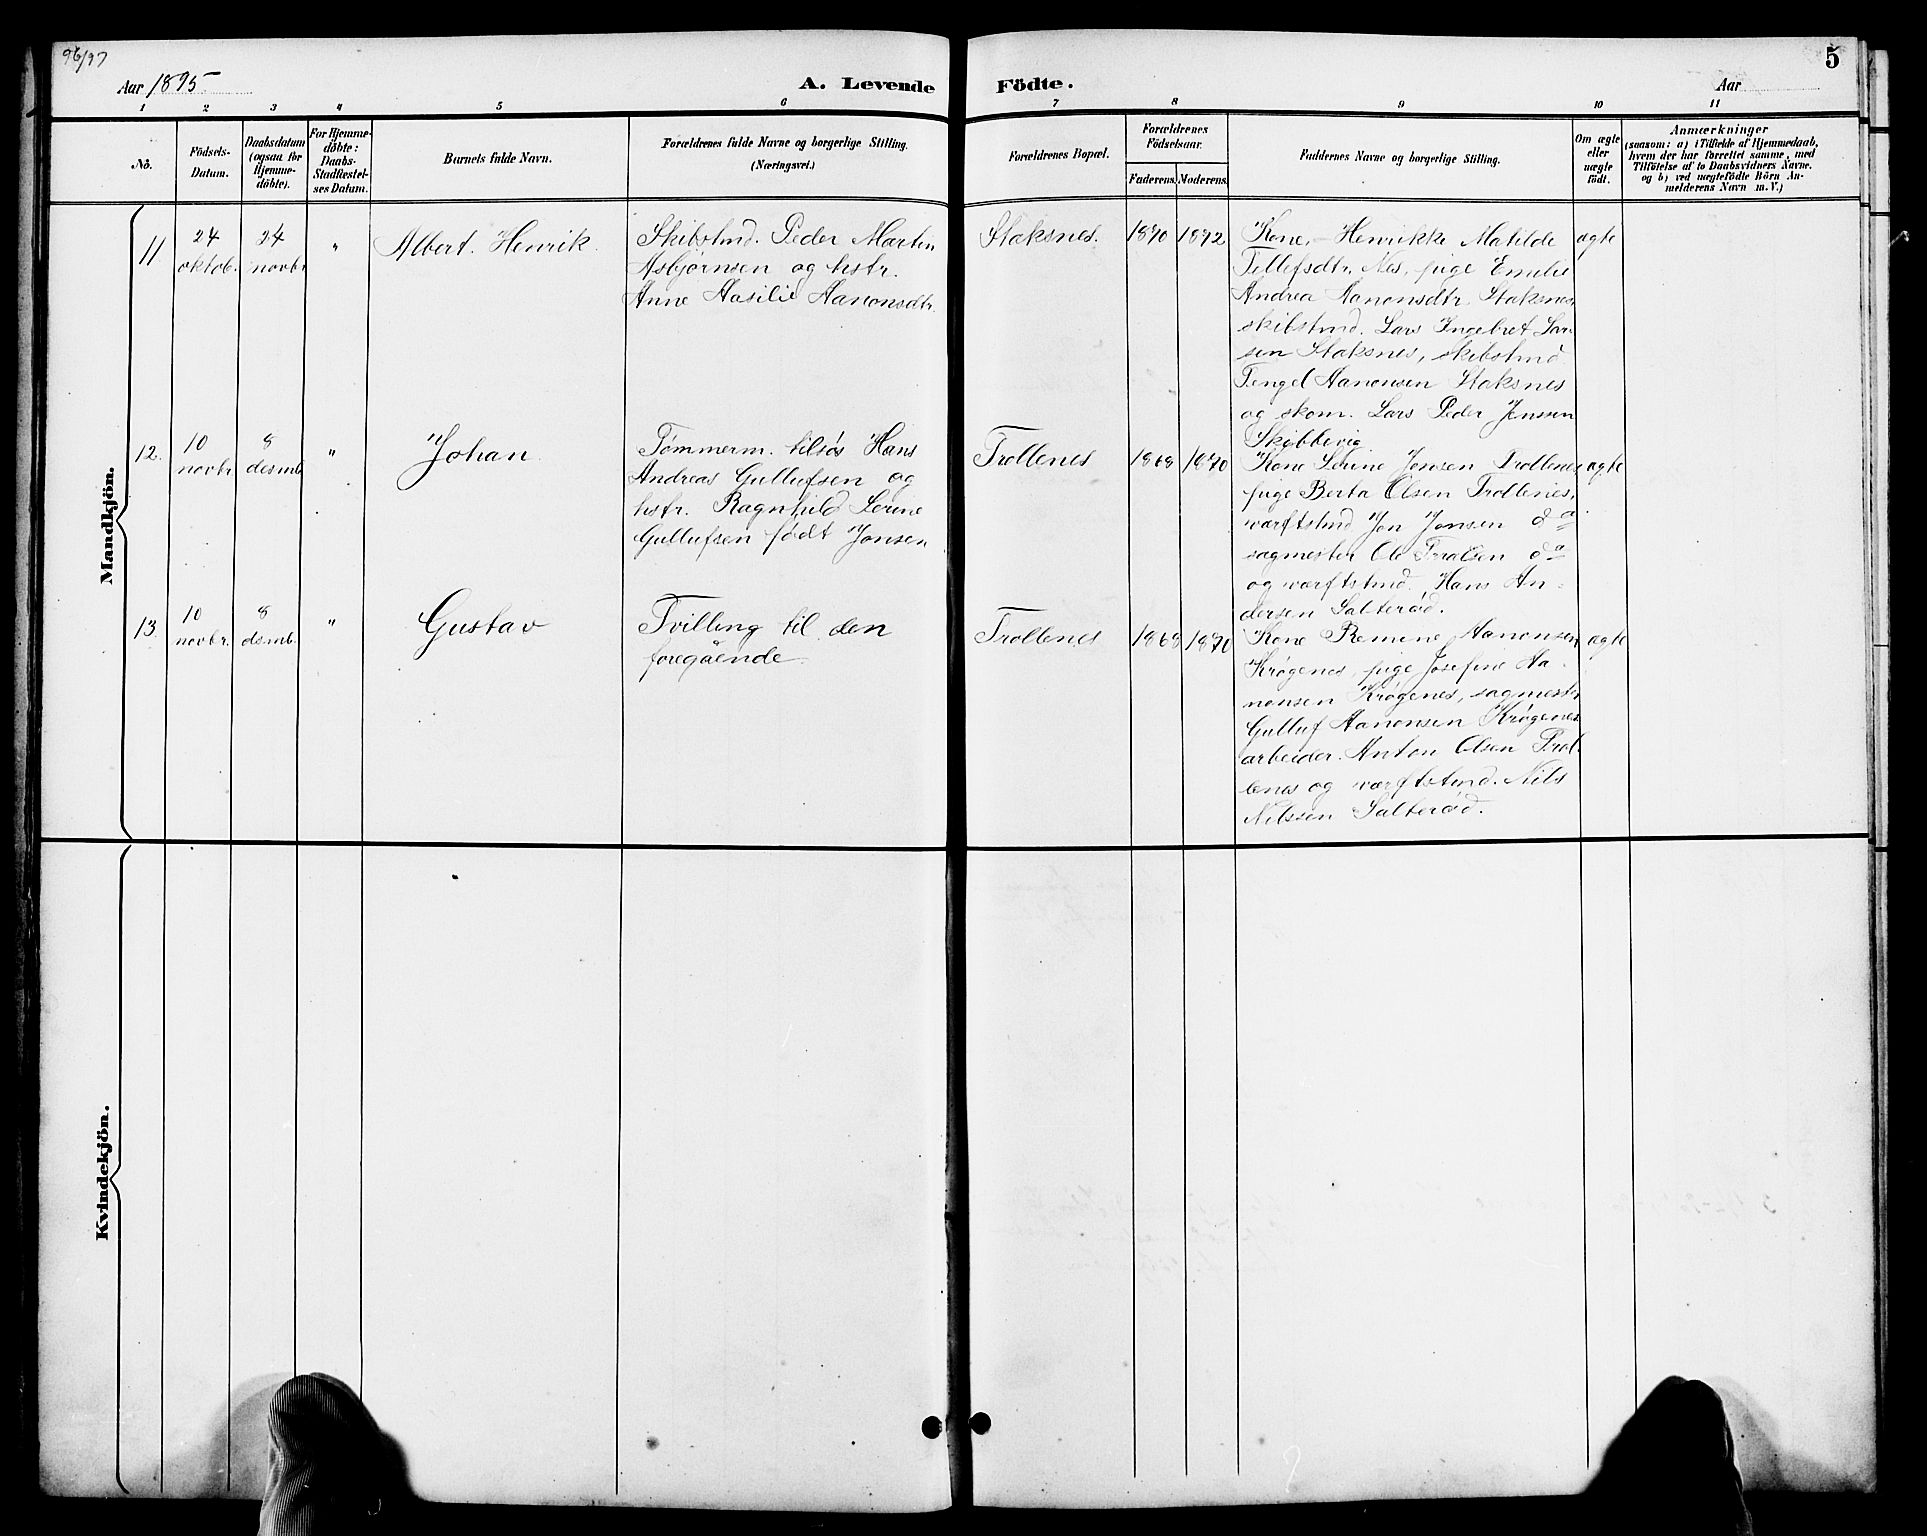 96/97
Aar 1895
A. Levende
Födte.
Aar
5
1 2 3 4 5 6 7 8 9 10 11
No.
Födsels-
Datum.
Daabsdatum
(ogsaa for
Hjemme-
döbte).
For Hjemme-
döbte:
Daabs-
Stadfæstel-
ses Datum.
Barnets fulde Navn.
Forældrenes fulde Navne og borgerlige Stilling.
(Næringsvei.)
Forældrenes Bopæl.
Forældrenes
Födselsaar.
Faderens. Moderens.
Faddernes Navne og borgerlige Stilling.
Om ægte
eller
uægte
födt.
Anmærkninger
(saasom: a) i Tilfælde af Hjemmedaab,
hvem der har forrettet samme, med
Tilföielse af to Daabsvidners Navne.
og b) ved uægtefödte Börn An-
melderens Navn m. V.)
Mandkjön.
11
24
oktob.
24
novbr
"
Albert Henrik.
Skibstmd. Peder Martin
Asbjørnsen og hstr.
Anne Aasilie Aanonsdtr.
Staksnes.
1870
1872
Kone, Henrikke Matilde
Tellefsdtr. Nes, pige Emilie
Andrea Aanonsdtr. Staksnes,
skibstmd. Lars Ingebret Lar-
sen Staksnes, skibstmd
Tengel Aanonsen Staksnes
og skom. Lars Peder Jenssen
Skibbevig
ægte
12.
10
novbr
8
desmb.
"
Johan.
Tømmerm. tilsøs Hans
Andreas Gullufsen og
hstr. Ragnhild Serine
Gullufsen født Jonsen
Trollenes
1868
1870
Kone Serine Jonsen Trollenes,
pige Berta Olsen Trollenes,
værftstmd Jon Jonsen da
sagmester Ole Tralsen da
og værftstmd. Hans An-
dersen Salterød.
ægte
13.
10
novbr.
8
desmb.
"
Gustav
Tvilling til den
foregående.
Trollenes
1868
1870
Kone Remine Aanonsen
Krøgenes, pige Josefine Aa-
nonsen Krøgenes, sagmester
Gulluf Aanonsen Krøgenes
arbeider Anton Olsen Trol-
lenes og værftstmd. Nils
Nilssen Salterød.
ægte
Kvindekjön.